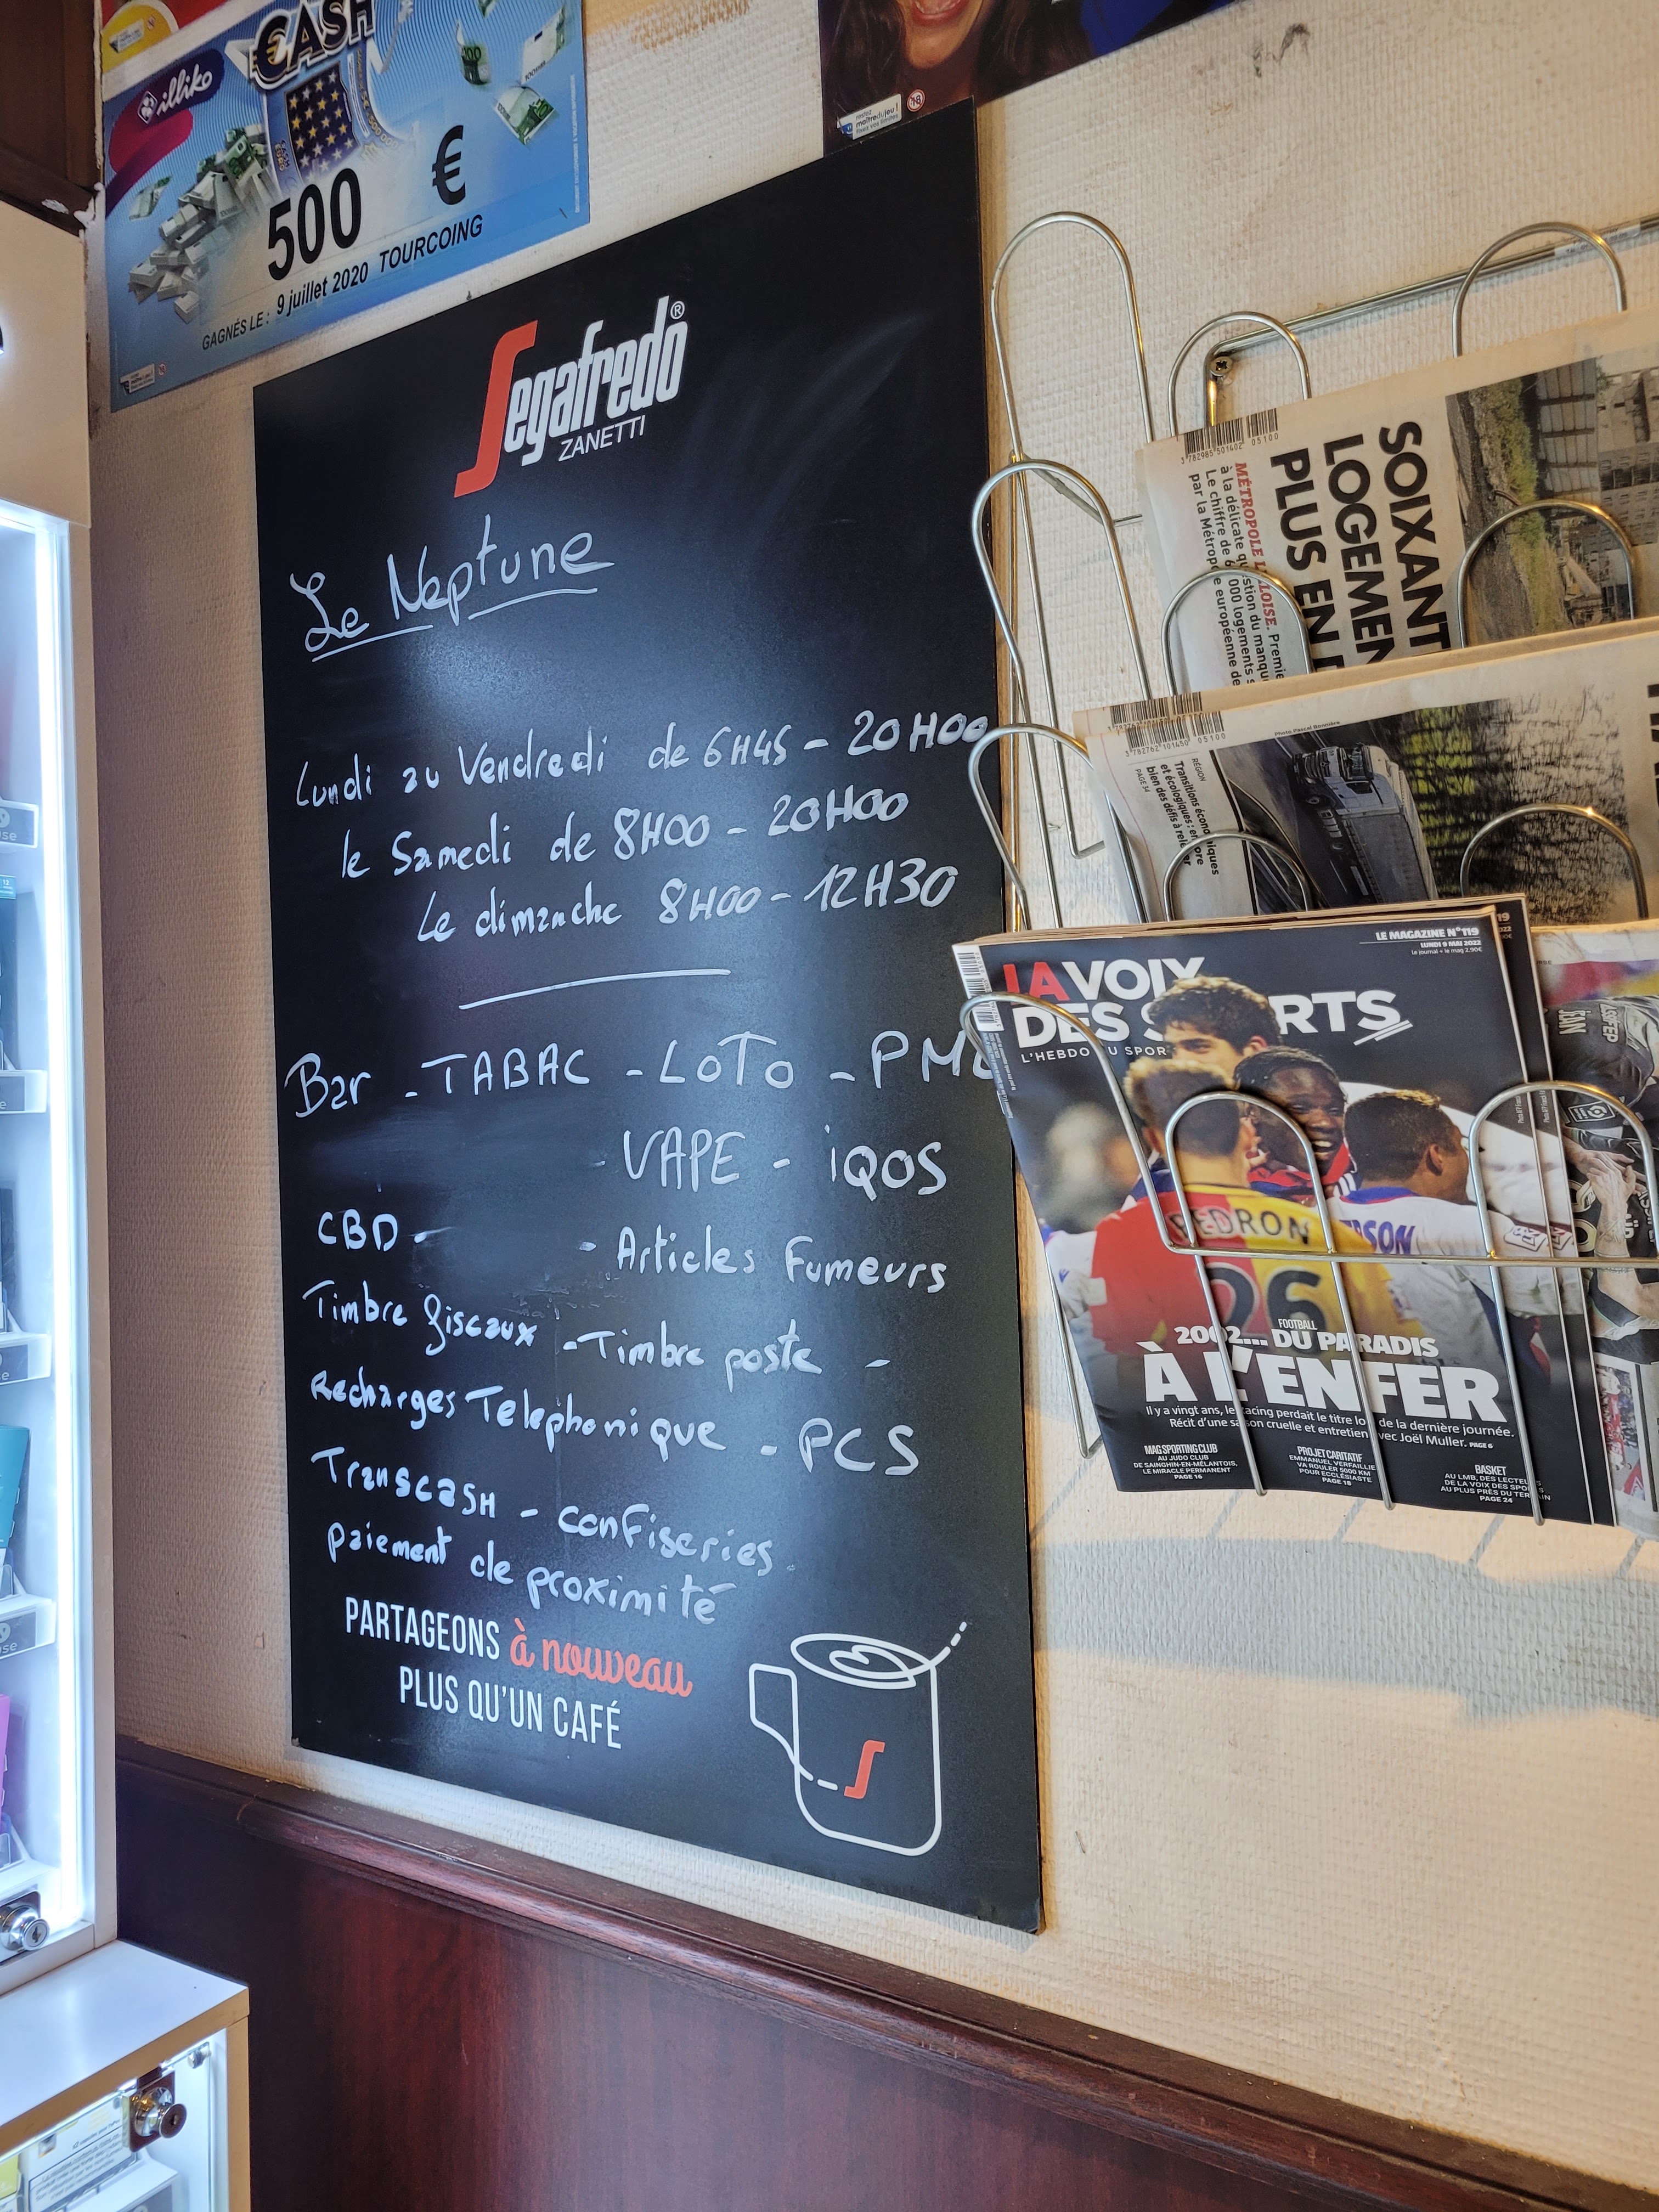 illiko
€ASH
500 €
GAGNÉS LE : 9 juillet 2020 TOURCOING
Segafredo®
ZANETTI
Le Neptune
Lundi au Vendredi de 6H45 - 20H00
le Samedi de 8H00 - 20H00
Le dimanche 8H00 - 12H30
Bar - TABAC - LOTO - PM
- VAPE - iQOS
CBD - - Articles Fumeurs
Timbre fiscaux - Timbre poste -
Recharges Telephonique - PCS
Transcash - confiseries
paiement de proximité
PARTAGEONS à nouveau
PLUS QU'UN CAFÉ
SOIXANT
LOGEMEN
PLUS EN
MÉTROPOLE
à la délicate
Le chiffre de
par la
3 782985 501402 05100
3 782762 101450 05100
Photo Pascal Bonnière
RÉGION
Transitions
et écologiques
bien des défis à
PAGE
LE MAGAZINE N°119
LUNDI 9 MAI 2022
Le journal + le mag 2.90€
LA VOIX
DES S RTS
L'HEBDO DU SPOR
PEDRON
26
SON
FOOTBALL
2002... DU PARADIS
À L'ENFER
Il y a vingt ans, le Racing perdait le titre lo de la dernière journée.
Récit d'une saison cruelle et entretien avec Joël Muller. PAGE 6
MAG SPORTING CLUB
AU JUDO CLUB
DE SAINGHIN-EN-MÉLANTOIS,
LE MIRACLE PERMANENT
PAGE 16
PROJET CARITATIF
EMMANUEL VERFAILLIE
VA ROULER 5000 KM
POUR ECCLÉSIASTE
PAGE 18
BASKET
AU LMB, DES LECTEURS
DE LA VOIX DES SPORTS
AU PLUS PRÈS DU TERRAIN
PAGE 24